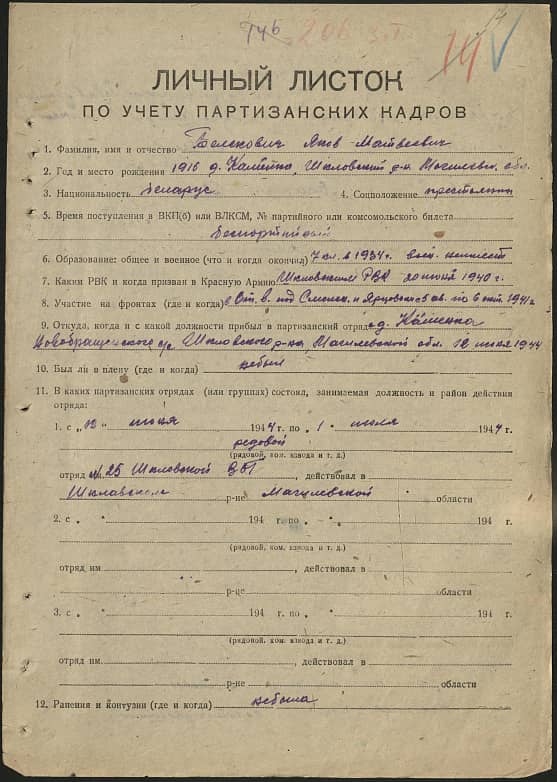 746 206 з.т. 14
ЛИЧНЫЙ ЛИСТОК
ПО УЧЕТУ ПАРТИЗАНСКИХ КАДРОВ
1. Фамилия, имя и отчество Белькович Яков Матвеевич
2. Год и место рождения 1916 д. Каменка, Шкловский р-н Могилевс. обл.
3. Национальность беларус 4. Соцположение крестьянин
5. Время поступления в ВКП(б) или ВЛКСМ, № партийного или комсомольского билета
беспартийный
6. Образование: общее и военное (что и когда окончил) 7 кл. в 1934 г.
7. Каким РВК и когда призван в Красную Армию Шкловским РВК 20 июня 1940 г.
8. Участие на фронтах (где и когда) под Смоленск. и по 6 окт. 1941 г.
9. Откуда, когда и с какой должности прибыл в партизанский отряд с д. Каменка
с/с Шкловского р-на, Магилевской обл. 12 июня 1944
10. Был ли в плену (где и когда) небыл
11. В каких партизанских отрядах (или группах) состоял, занимаемая должность и район действия
отряда:
1. с „12" июня 1944 г. по „1" июля 1944 г.
редовой
(рядовой, ком. взвода и т. д.)
отряд № 25 Шкловской ВОГ, действовал в
Шкловском р-не Магилевской области
2. с „ " 194 г. по „ " 194 г.
(рядовой, ком. взвода и т. д.)
отряд им , действовал в
р-це области
3. с „ " 194 г. по „ " 194 г.
(рядовой, ком. взвода и т. д.)
отряд им. , действовал в
р-не области
12. Ранения и контузии (где и когда) небыла